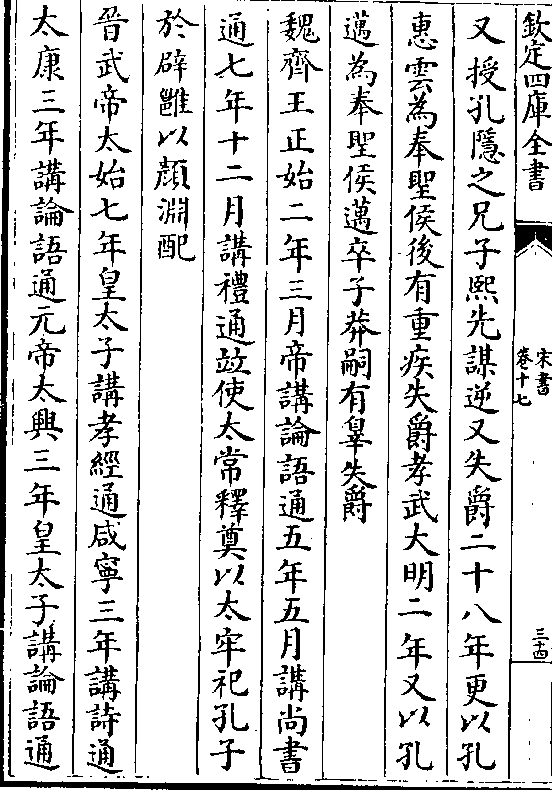 欽定四庫全書
宋書
卷十七
三十四
又授孔隱之兄子熙先謀逆又失爵二十八年更以孔
惠雲為奉聖侯後有重疾失爵孝武大明二年又以孔
邁為奉聖侯邁卒子莽嗣有辠失爵
魏齊王正始二年三月帝講論語通五年五月講尚書
通七年十二月講禮通竝使太常釋奠以太牢祀孔子
於辟雝以顏淵配
晉武帝太始七年皇太子講孝經通咸寧三年講詩通
太康三年講論語通元帝太興三年皇太子講論語通